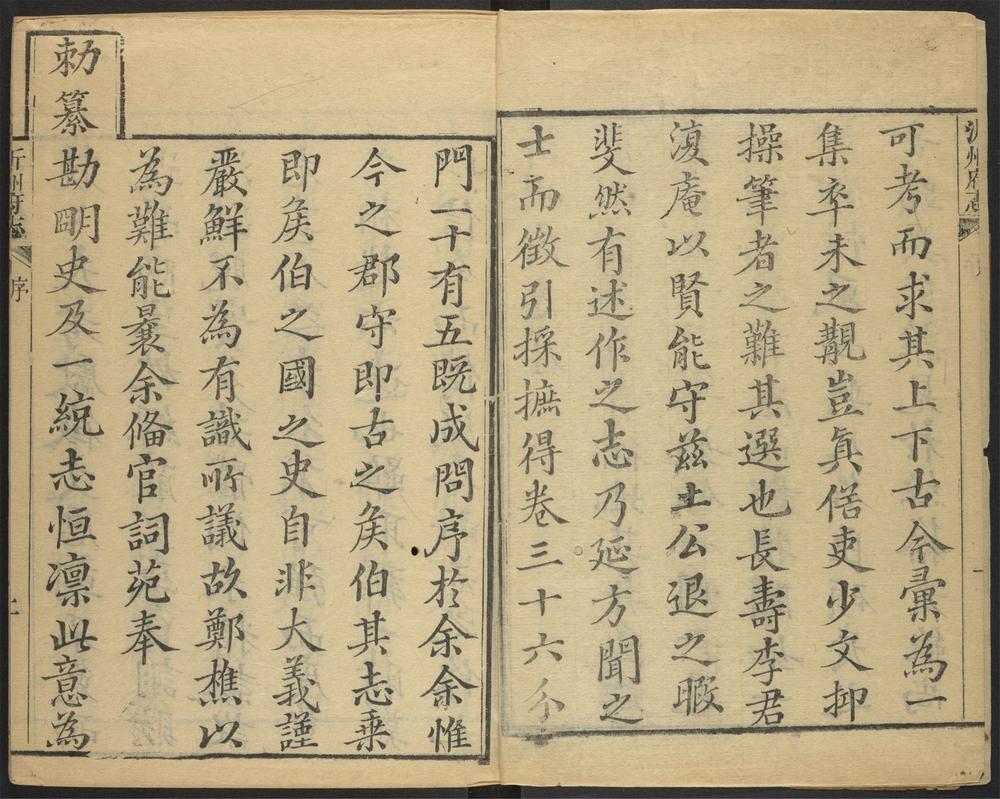 沂州府志
可考而求其上下古今彚為一
集卒未之覯豈眞俗吏少文抑
操筆者之難其選也長壽李君
澓庵以賢能守茲土公退之暇
斐然有述作之志乃延方聞之
士而徵引採摭得卷三十六分
門一十有五既成問序於余余惟
今之郡守即古之矦伯其志乗
即矦伯之國之史自非大義謹
嚴鮮不為有識所議故鄭樵以
為難能曩余偹官詞苑奉
勅纂
勘明史及一統志恒凛此意為
沂州府志
序
二